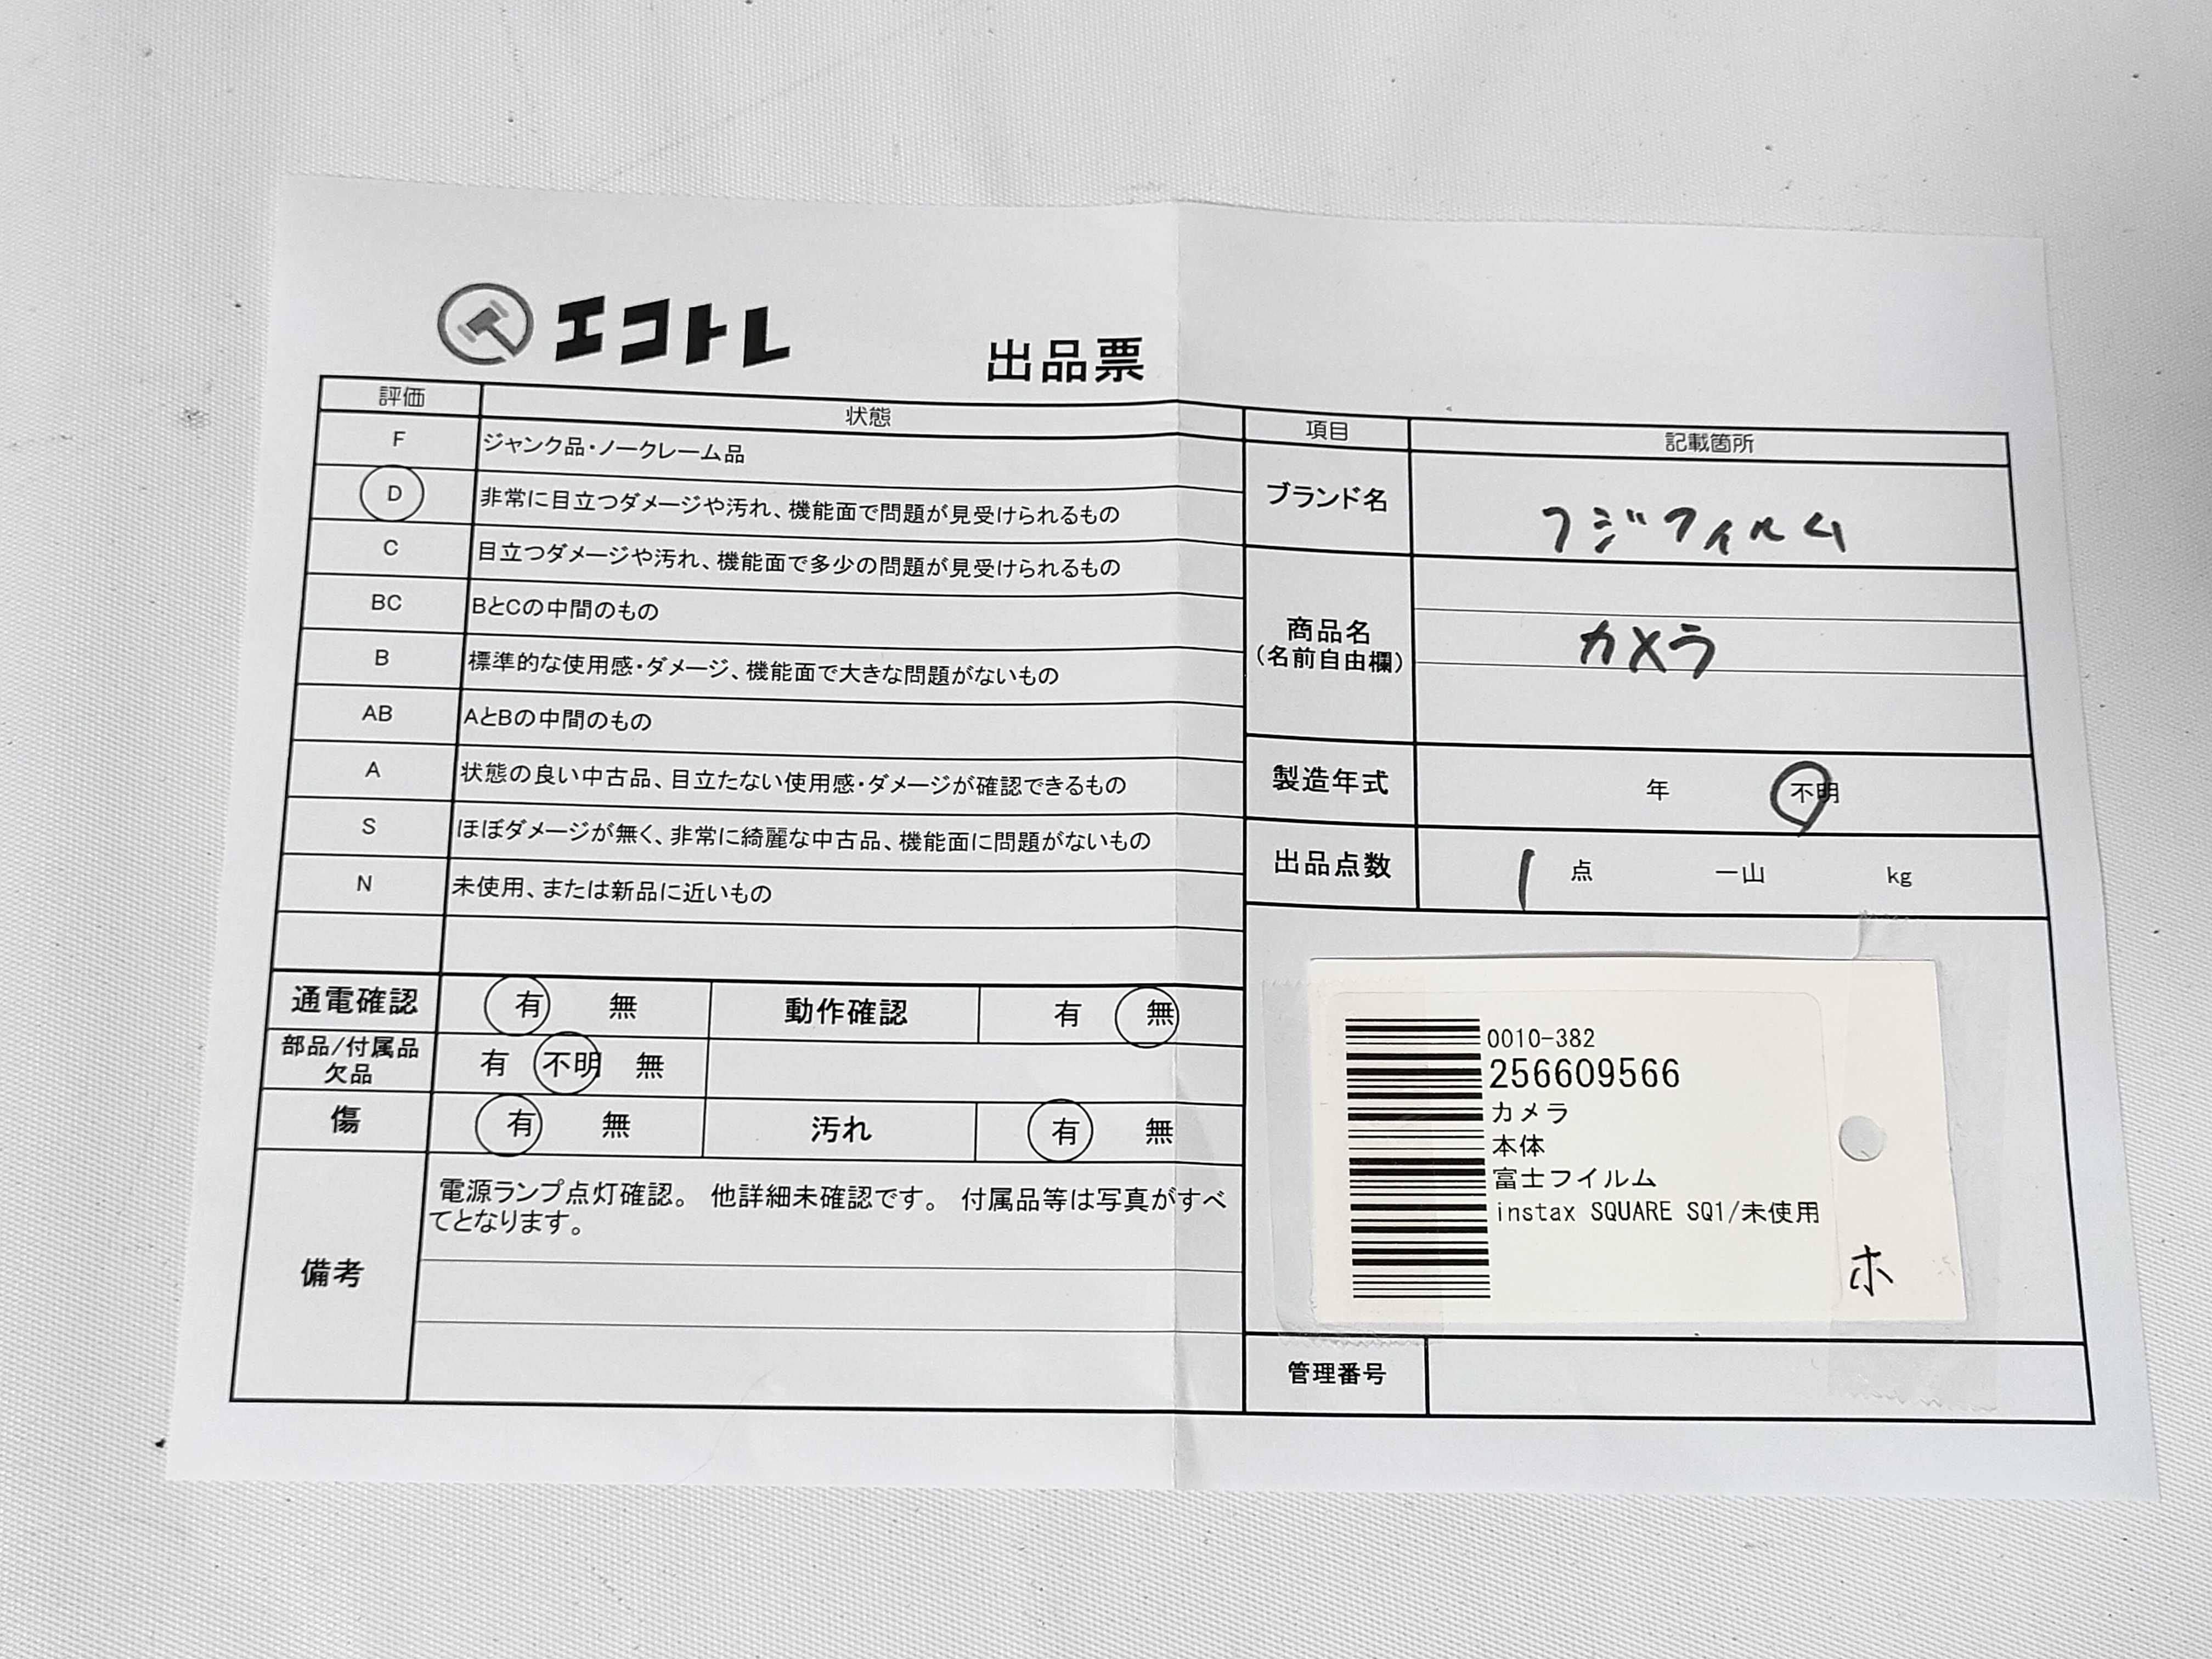 エコトレ
出品票
評価 状態
F ジャンク品・ノークレーム品
D 非常に目立つダメージや汚れ、機能面で問題が見受けられるもの
C 目立つダメージや汚れ、機能面で多少の問題が見受けられるもの
BC BとCの中間のもの
B 標準的な使用感・ダメージ、機能面で大きな問題がないもの
AB AとBの中間のもの
A 状態の良い中古品、目立たない使用感・ダメージが確認できるもの
S ほぼダメージが無く、非常に綺麗な中古品、機能面に問題がないもの
N 未使用、または新品に近いもの
通電確認 有 無 動作確認 有 無
部品/付属品
欠品 有 不明 無
傷 有 無 汚れ 有 無
備考
電源ランプ点灯確認。 他詳細未確認です。 付属品等は写真がすべ
てとなります。
項目 記載箇所
ブランド名 フジフィルム
商品名
(名前自由欄) カメラ
製造年式 年 不明
出品点数 1 点 一山 kg
0010-382
256609566
カメラ
本体
富士フイルム
instax SQUARE SQ1/未使用
ホ
管理番号